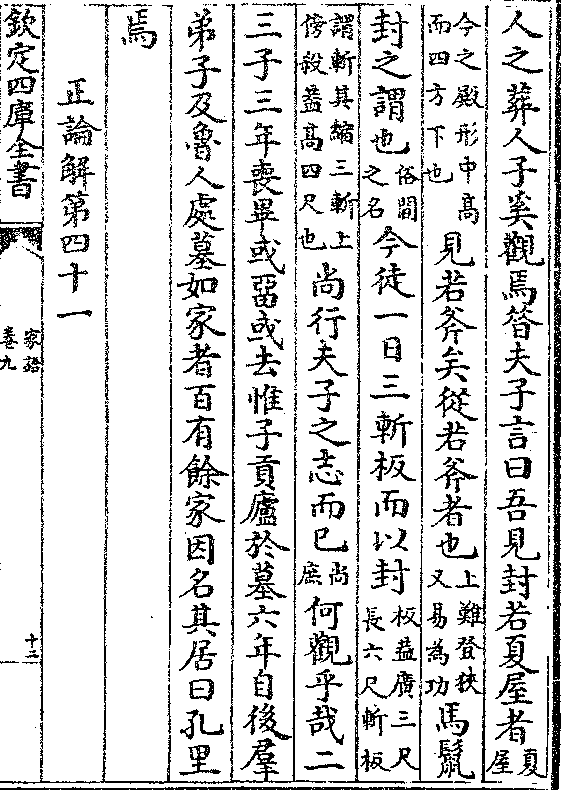 人之葬人子奚觀焉昔夫子言曰吾見封若夏屋者夏屋
今之殿形中高而四方下也見若斧矣從若斧者也上難登狹又易為功馬鬛
封之謂也俗間之名今徒一日三斬板而以封板葢廣三尺長六尺斬板
謂斬其縮三斬上傍殺葢高四尺也尚行夫子之志而已尚庶何觀乎哉二
三子三年喪畢或畱或去惟子貢廬於墓六年自後羣
弟子及魯人處墓如家者百有餘家因名其居曰孔里
焉
正論解第四十一
欽定四庫全書
家語
卷九
十三